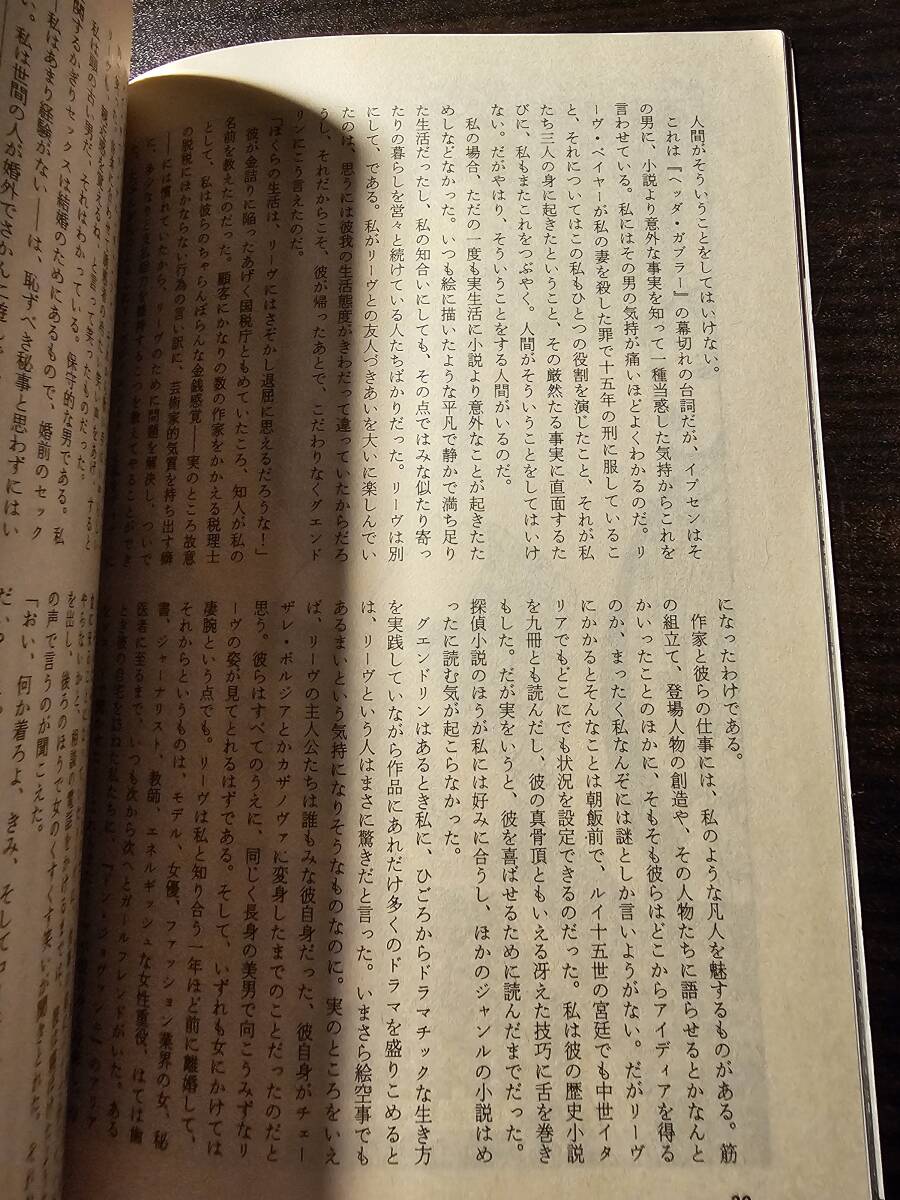 人間がそういうことをしてはいけない。
これは『ヘッダ・ガブラー』の幕切れの台詞だが、イプセンはそ
の男に、小説より意外な事実を知って一種当惑した気持からこれを
言わせている。私にはその男の気持が痛いほどよくわかるのだ。リ
ーヴ・ベイヤーが私の妻を殺した罪で十五年の刑に服しているこ
と、それについてはこの私もひとつの役割を演じたこと、それが私
たち三人の身に起きたということ、その厳然たる事実に直面するた
びに、私もまたこれをつぶやく。人間がそういうことをしてはいけ
ない。だがやはり、そういうことをする人間がいるのだ。
私の場合、ただの一度も実生活に小説より意外なことが起きたた
めしなどなかった。いつも絵に描いたような平凡で静かで満ち足り
た生活だったし、私の知合いにしても、その点ではみな似たり寄っ
たりの暮らしを営々と続けている人たちばかりだった。リーヴは別
にして、である。私がリーヴとの友人づきあいを大いに楽しんでい
たのは、思うには彼我の生活態度がきわだって違っていたからだろ
うし、それだからこそ、彼が帰ったあとで、こだわりなくグエンド
リンにこう言えたのだ。
「ぼくらの生活は、リーヴにはさぞかし退屈に思えるだろうな!」
彼が金詰りに陥ったあげく国税庁ともめていたころ、知人が私の
名前を教えたのだった。顧客にかなりの数の作家をかかえる税理士
として、私は彼らのちゃらんぽらんな金銭感覚――実のところ故意
の脱税にほかならない行為の言い訳に、芸術家的気質を持ち出す癖
――には慣れていたから、リーヴのために問題を解決し、ついで
になったわけである。
作家と彼らの仕事には、私のような凡人を魅するものがある。筋
の組立て、登場人物の創造や、その人物たちに語らせるとかなんと
かいったことのほかに、そもそも彼らはどこからアイディアを得る
のか、まったく私なんぞには謎としか言いようがない。だがリーヴ
にかかるとそんなことは朝飯前で、ルイ十五世の宮廷でも中世イタ
リアでもどこにでも状況を設定できるのだった。私は彼の歴史小説
を九冊とも読んだし、彼の真骨頂ともいえる冴えた技巧に舌を巻き
もした。だが実をいうと、彼を喜ばせるために読んだまでだった。
探偵小説のほうが私には好みに合うし、ほかのジャンルの小説はめ
ったに読む気が起こらなかった。
グエンドリンはあるとき私に、ひごろからドラマチックな生き方
を実践していながら作品にあれだけ多くのドラマを盛りこめると
は、リーヴという人はまさに驚きだと言った。いまさら絵空事でも
あるまいという気持になりそうなものなのに。実のところをいえ
ば、リーヴの主人公たちは誰もみな彼自身だった、彼自身がチェー
ザレ・ボルジアとかカザノヴァに変身したまでのことだったのだと
思う。彼らはすべてのうえに、同じく長身の美男で向こうみずなリ
ーヴの姿が見てとれるはずである。そして、いずれも女にかけては
凄腕という点でも。リーヴは私と知り合う一年ほど前に離婚して、
それからというものは、モデル、女優、ファッション業界の女、秘
書、ジャーナリスト、教師、エネルギッシュな女性重役、はては歯
医者に至るまで、いつも次から次へとガールフレンドがいた。ある
とき彼の自宅を訪ねた私たちに、『ドン・ジョヴァンニ』のアリア
と言って笑ったものだった。
私は頭の古い男だ、それはわかっている。保守的な男である。私
に関するかぎりセックスは結婚のためにあるもので、婚前のセック
――私はあまり経験がない――は、恥ずべき秘事と思わずにはい
い。私は世間の人が婚外でさかんに
を出し、後ろのほうで女のくすくす笑いが聞こえた。
の声で言うのが聞こえた。
「おい、何か着ろよ、きみ、そして